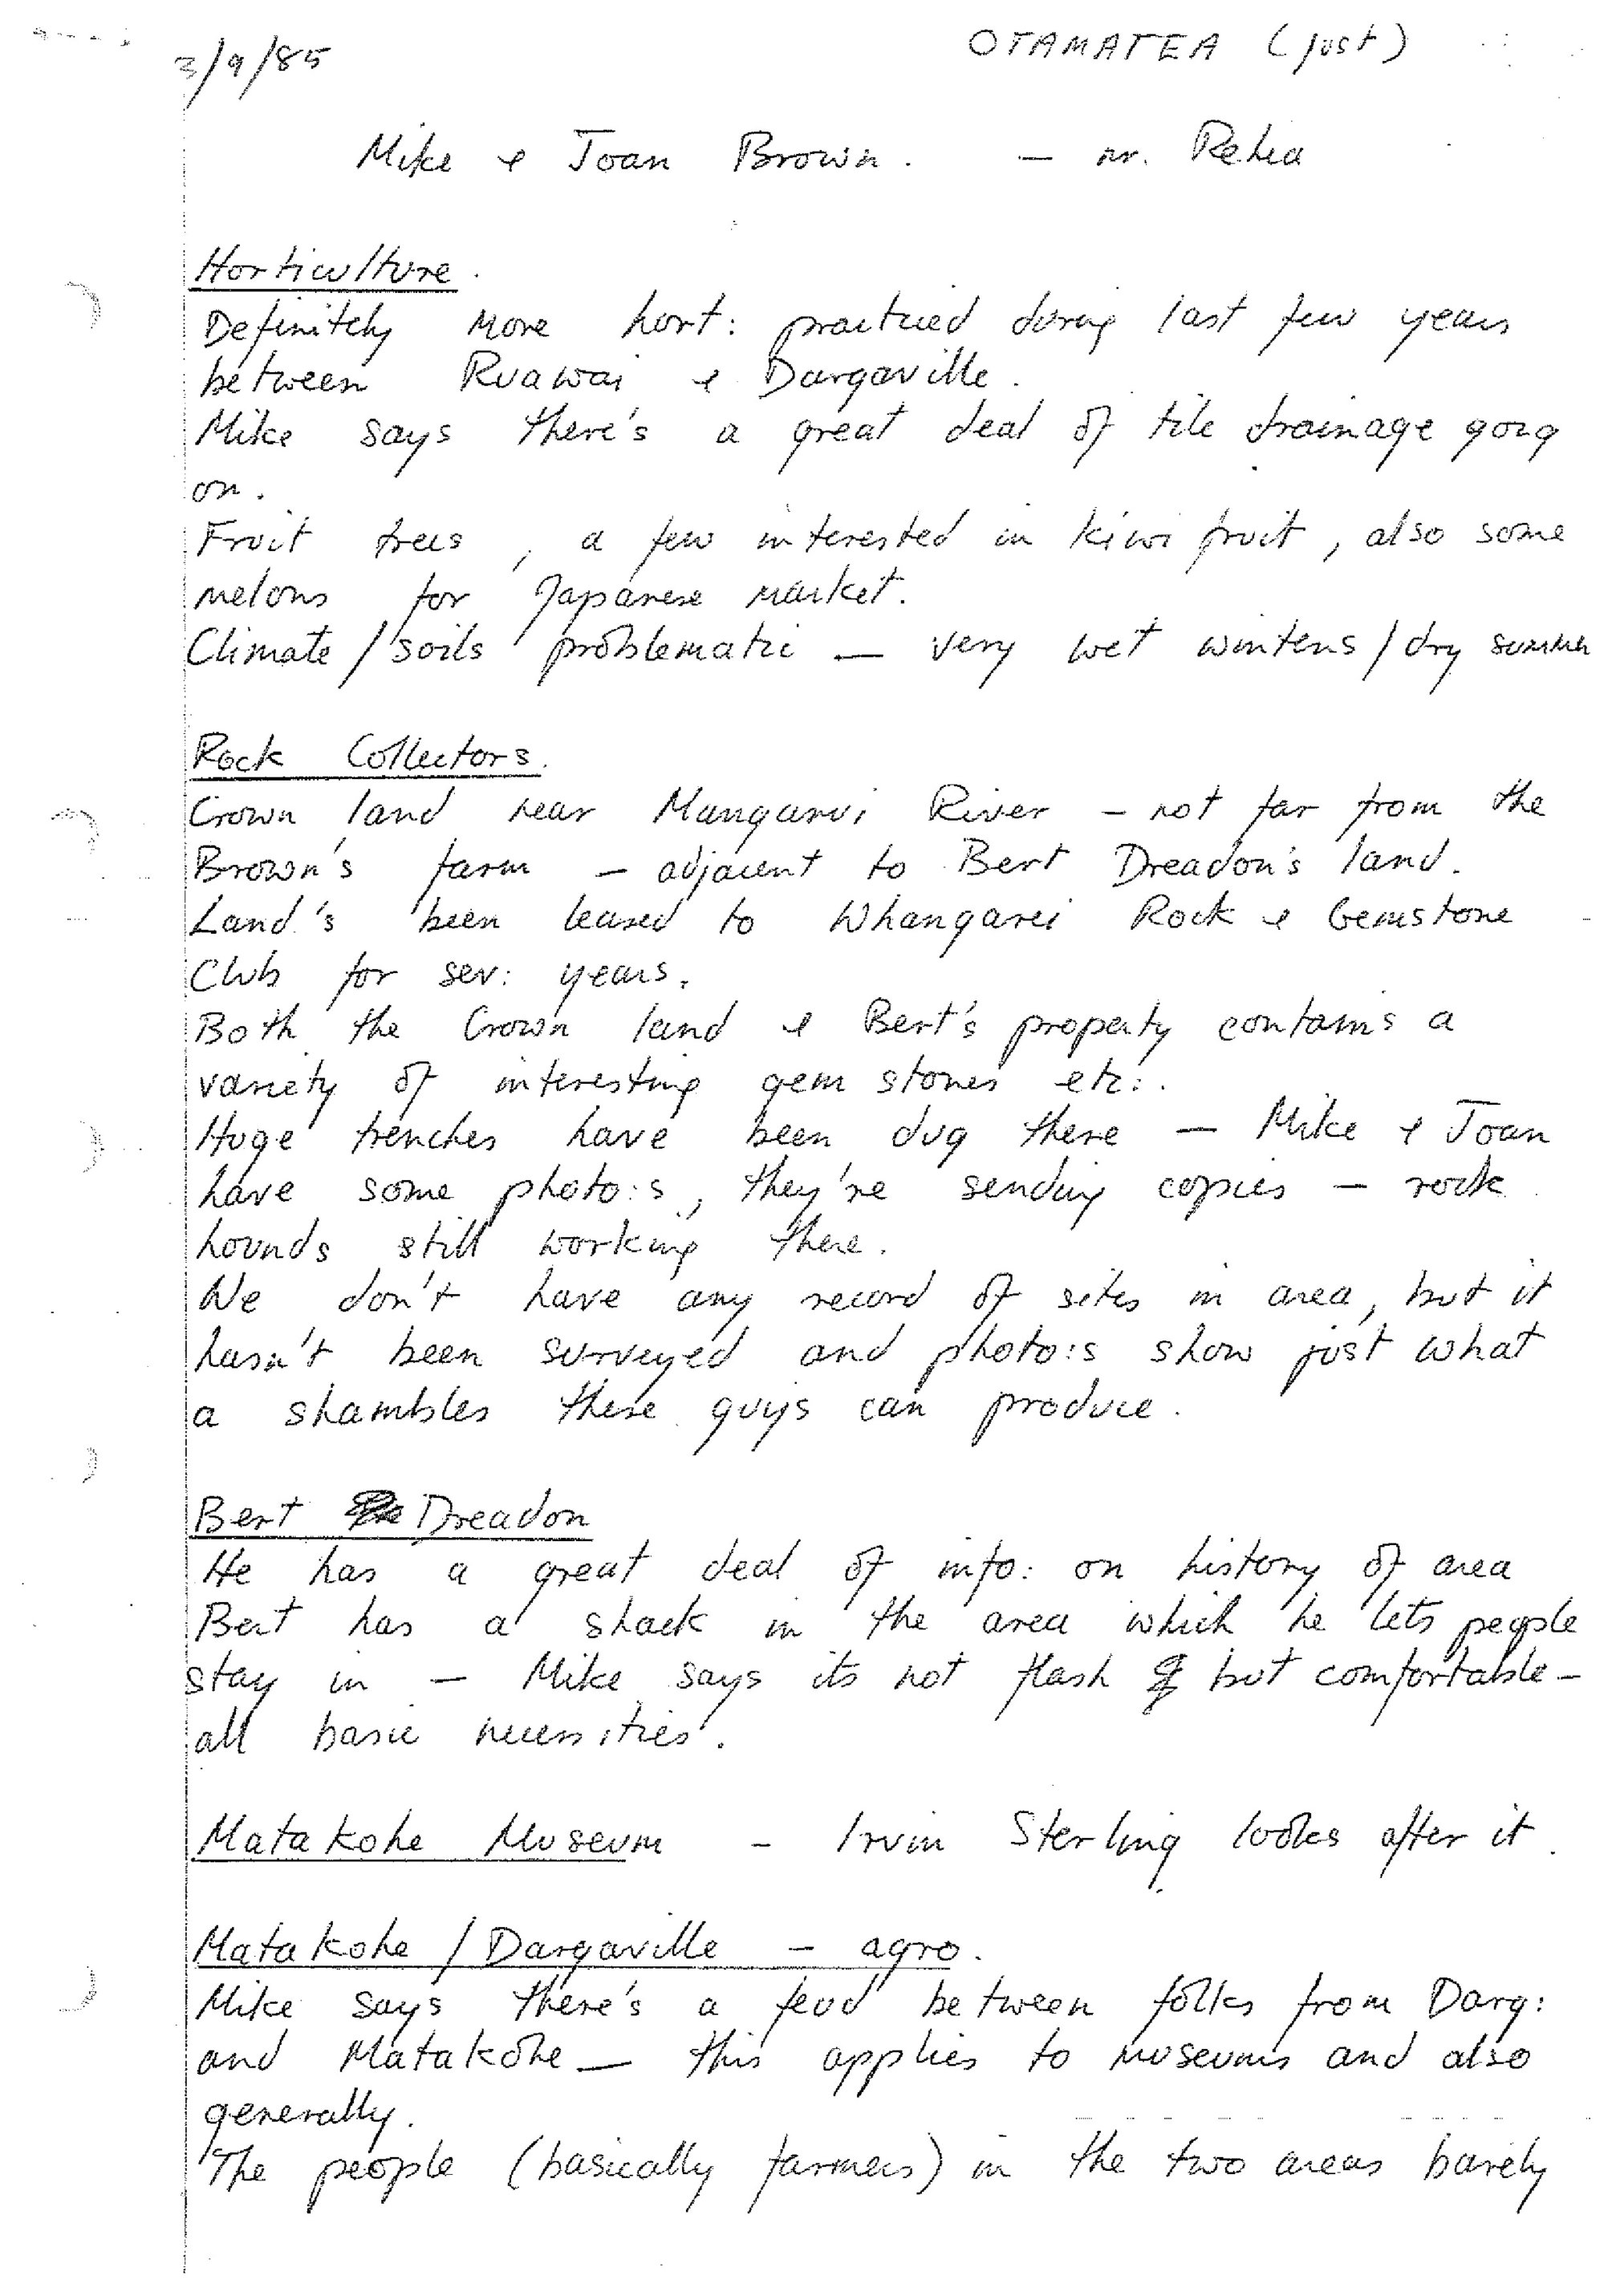 3/9/85
OTAMATEA (just)
Mike & Joan Brown. — nr. Rehia
Horticulture.
Definitely more hort: practiced during last few years
between Ruawai & Dargaville.
Mike says there's a great deal of tile drainage going
on.
Fruit trees, a few interested in kiwi fruit, also some
melons for Japanese market.
Climate/soils problematic — very wet winters/dry summer
Rock Collectors.
Crown land near Mangarui River – not far from the
Brown's farm – adjacent to Bert Dreadon's land.
Land's been leased to Whangarei Rock & Gemstone
Club for sev: years.
Both the Crown land & Bert's property contains a
variety of interesting gem stones etc:.
Huge trenches have been dug there — Mike & Joan
have some photo:s, they're sending copies – rock
hounds still working there.
We don't have any record of sites in area, but it
hasn't been surveyed and photo:s show just what
a shambles these guys can produce.
Bert Dreadon
He has a great deal of info: on history of area
Bert has a shack in the area which he lets people
stay in – Mike says its not flash but comfortable –
all basic necessities.
Matakohe Museum – Irvin Sterling looks after it.
Matakohe / Dargaville – agro.
Mike says there's a feud between folks from Darg:
and Matakohe — this applies to museums and also
generally.
The people (basically farmers) in the two areas barely